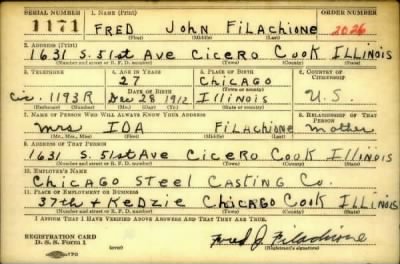 SERIAL NUMBER 1. NAME (Print) ORDER NUMBER
1171 FRED JOHN FiLAchione 2026
(First) (Middle) (Last)
2. ADDRESS (Print)
1631 S. 51st Ave Cicero Cook Illinois
(Number and street or R. F. D. number) (Town) (County) (State)
3. TELEPHONE 4. AGE IN YEARS 5. PLACE OF BIRTH 6. COUNTRY OF CITIZENSHIP
27 Chicago
DATE OF BIRTH (Town or county)
Cic. 1193R Dec 28 1912 Illinois U.S.
(Exchange) (Number) (Mo.) (Day) (Yr.) (State or country)
7. NAME OF PERSON WHO WILL ALWAYS KNOW YOUR ADDRESS 8. RELATIONSHIP OF THAT PERSON
Mrs IDA FiLAchione mother
(Mr., Mrs., Miss) (First) (Middle) (Last)
9. ADDRESS OF THAT PERSON
1631 S. 51st Ave Cicero Cook Illinois
(Number and street or R. F. D. number) (Town) (County) (State)
10. EMPLOYER'S NAME
Chicago Steel Casting Co.
11. PLACE OF EMPLOYMENT OR BUSINESS
37th + Kedzie Chicago Cook Illinois
(Number and street or R. F. D. number) (Town) (County) (State)
I AFFIRM THAT I HAVE VERIFIED ABOVE ANSWERS AND THAT THEY ARE TRUE.
REGISTRATION CARD
D. S. S. Form 1 Fred J. Filachione
(Registrant's signature)